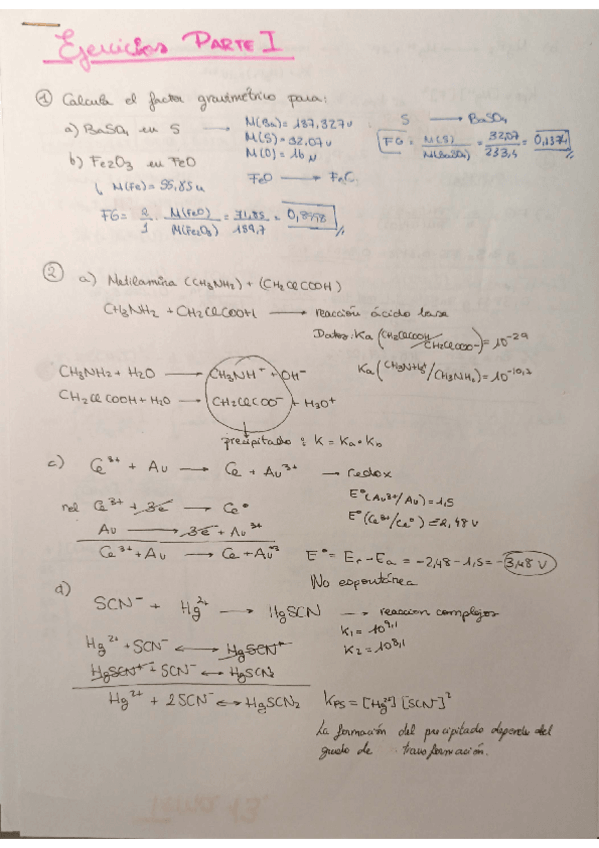 Ejercicios PARTE I
① Calcula el factor gravimétrico para:
a) BaSO4 en S → M(Ba) = 137,327u
M(S) = 32,07u
M(O) = 16u
S → BaSO4
FG = M(S)/M(BaSO4) = 32,07/233,4 = 0,1374
b) Fe2O3 en FeO
↳ M(Fe) = 55,85u
FeO →
FG = 2/1 · M(FeO)/M(Fe2O3) = 71,85/159,7 = 0,8998
② a) Metilamina (CH3NH2) + (CH2ClCOOH)
CH3NH2 + CH2ClCOOH → reacción ácido base
Datos: Ka (CH2ClCOOH/CH2ClCOO-) = 10^-2,9
Ka (CH3NH3+/CH3NH2) = 10^-10,3
CH3NH2 + H2O → CH3NH+ + OH-
CH2ClCOOH + H2O → CH2ClCOO- + H3O+
precipitado : K = Ka · Kb
c) Ce3+ + Au → Ce + Au3+ → redox
E°(Au3+/Au) = 1,5
E°(Ce3+/Ce°) = 2,48 V
Ce3+ + 3e- → Ce°
Au → 3e- + Au3+
Ce3+ + Au → Ce + Au+3
E° = Er - Ea = -2,48 - 1,5 = -3,48 V
No espontánea
d)
SCN- + Hg2+ → HgSCN → reacción complejos
K1 = 10^9,1
K2 = 10^8,1
Hg2+ + SCN- ↔ HgSCN+
HgSCN+ + SCN- ↔ HgSCN2
Hg2+ + 2SCN- ↔ HgSCN2
KPS = [Hg2+] [SCN-]2
La formación del precipitado depende del
grado de transformación.